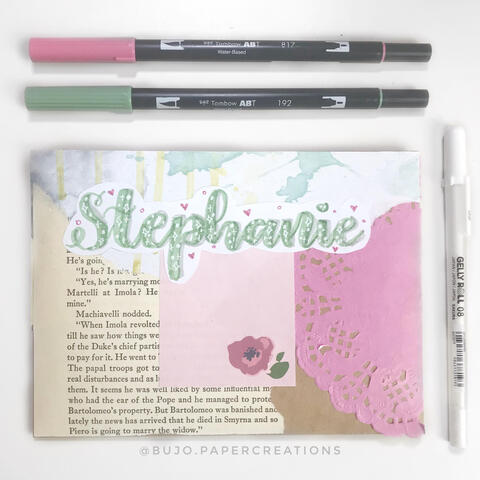 Tombow ABT 817
Water-Based
Tombow ABT 192
Stephanie
He's going
"Is he? Is
"Yes, he's marrying
Martelli at Imola? He
mine."
Machiavelli nodded.
"When Imola revolted
till he saw how things we
of the Duke's chief parti
to pay for it. He went to
The papal troops got to
real disturbances and as
them. It seems he was well liked by some influential m
who had the ear of the Pope and he managed to prote
Bartolomeo's property. But Bartolomeo was banished and
lately the news has arrived that he died in Smyrna and so
Piero is going to marry the widow."
GELLY ROLL 08
@BUJO.PAPERCREATIONS